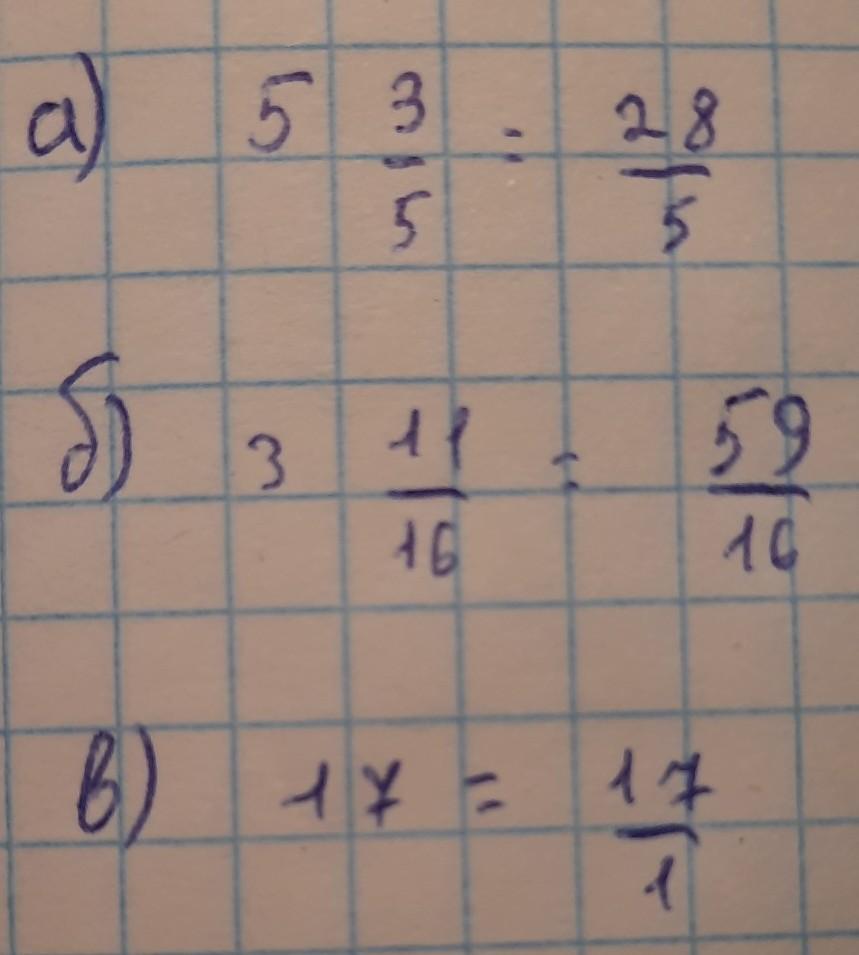 а) 5 3/5 = 28/5
б) 3 11/16 = 59/16
в) 17 = 17/1